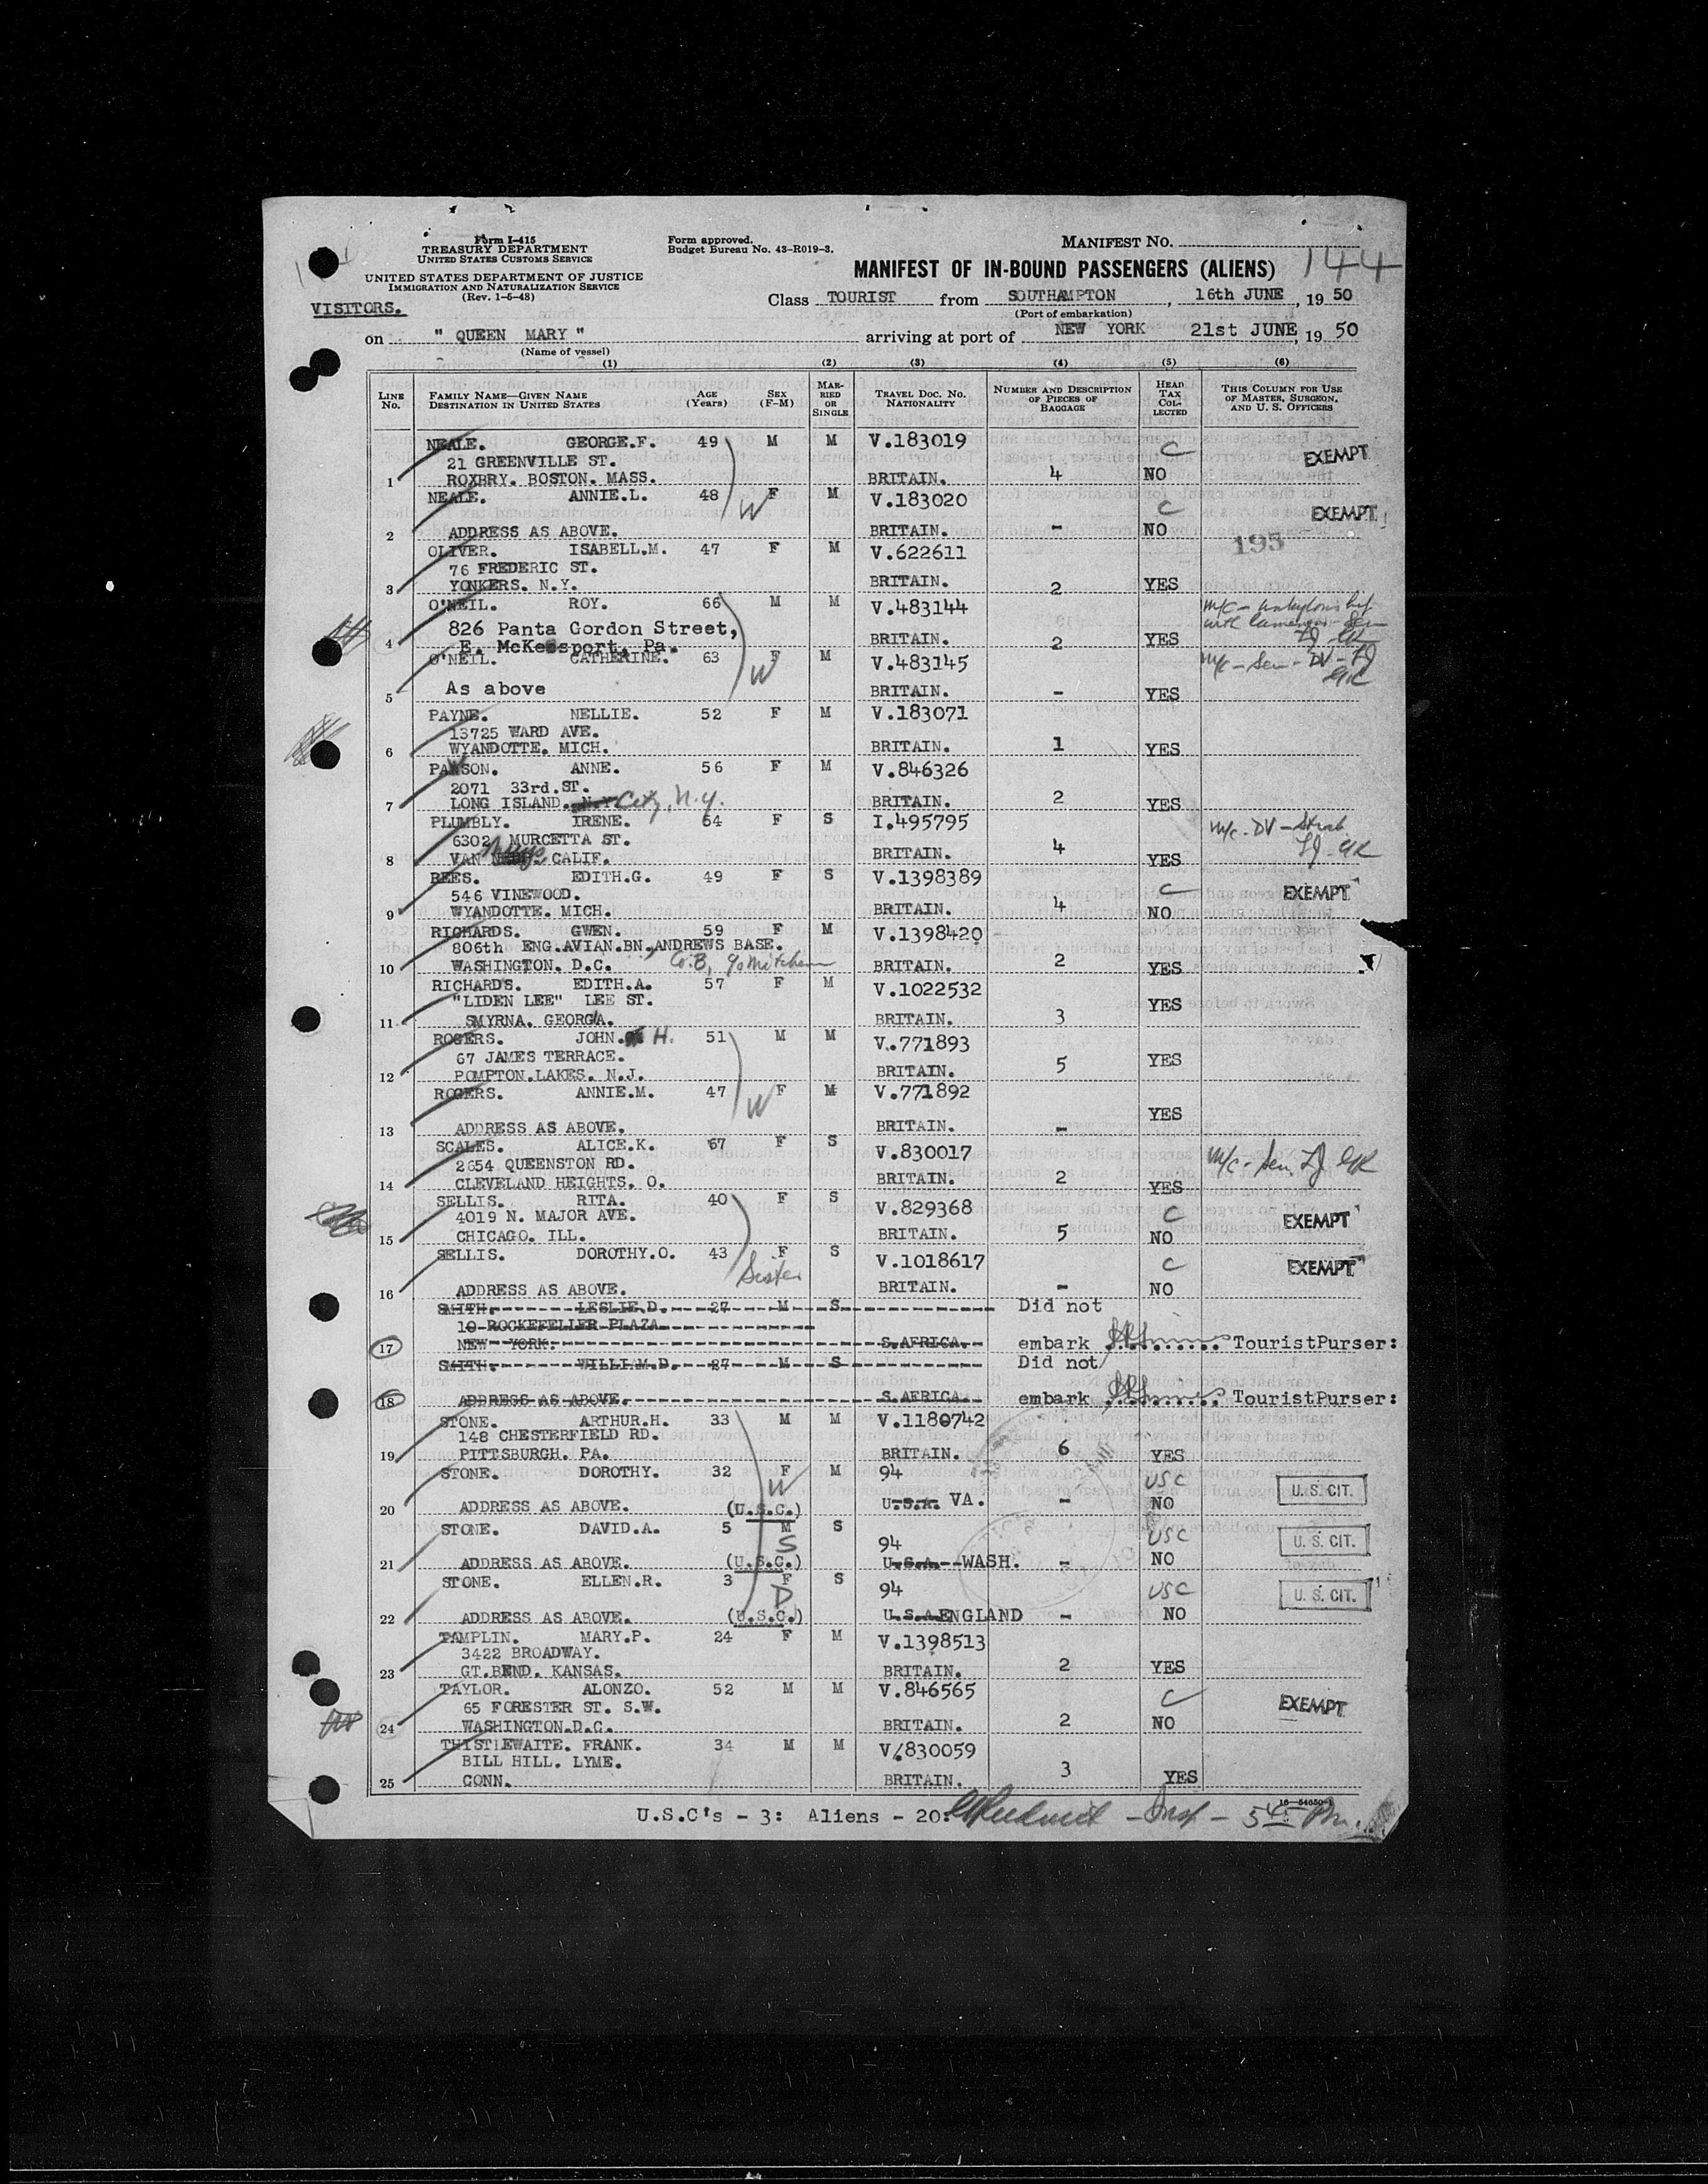 Form I-415
TREASURY DEPARTMENT
UNITED STATES CUSTOMS SERVICE
UNITED STATES DEPARTMENT OF JUSTICE
IMMIGRATION AND NATURALIZATION SERVICE
(Rev. 1-5-48)
Form approved.
Budget Bureau No. 43-R019-3.
MANIFEST NO.
MANIFEST OF IN-BOUND PASSENGERS (ALIENS) 144
VISITORS.
Class TOURIST from SOUTHAMPTON, 16th JUNE, 19 50
(Port of embarkation)
on " QUEEN MARY " arriving at port of NEW YORK 21st JUNE, 19 50
(Name of vessel)
(1) (2) (3) (4) (5) (6)
LINE No. FAMILY NAME—GIVEN NAME DESTINATION IN UNITED STATES AGE (Years) SEX (F-M) MARRIED OR SINGLE TRAVEL DOC. NO. NATIONALITY NUMBER AND DESCRIPTION OF PIECES OF BAGGAGE HEAD TAX COLLECTED THIS COLUMN FOR USE OF MASTER, SURGEON, AND U. S. OFFICERS
NEALE. GEORGE.F. 49 M M V.183019 C EXEMPT
21 GREENVILLE ST.
1 ROXBRY. BOSTON. MASS. BRITAIN. 4 NO
NEALE. ANNIE.L. 48 W F M V.183020 C EXEMPT
2 ADDRESS AS ABOVE. BRITAIN. - NO
OLIVER. ISABELL.M. 47 F M V.622611 195
76 FREDERIC ST.
3 YONKERS. N.Y. BRITAIN. 2 YES
O'NEIL. ROY. 66 M M V.483144
826 Panta Gordon Street,
4 E. McKeesport, Pa. BRITAIN. 2 YES
O'NEIL. CATHERINE. 63 W F M V.483145 M/C - Sen - DV -
5 As above BRITAIN. - YES
PAYNE. NELLIE. 52 F M V.183071
13725 WARD AVE.
6 WYANDOTTE. MICH. BRITAIN. 1 YES
PAWSON. ANNE. 56 F M V.846326
2071 33rd.ST.
7 LONG ISLAND. City, N.Y. BRITAIN. 2 YES
PLUMBLY. IRENE. 64 F S I.495795 M/C - DV -
6302 MURCETTA ST.
8 VAN Nuys CALIF. BRITAIN. 4 YES
REES. EDITH.G. 49 F S V.1398389 C EXEMPT
546 VINEWOOD.
9 WYANDOTTE. MICH. BRITAIN. 4 NO
RICHARDS. GWEN. 59 F M V.1398420
806th ENG.AVIAN.BN.,ANDREWS BASE.
10 WASHINGTON. D.C. Co.B, BRITAIN. 2 YES
RICHARDS. EDITH.A. 57 F M V.1022532
"LIDEN LEE" LEE ST. YES
11 SMYRNA. GEORGIA. BRITAIN. 3
ROGERS. JOHN. H. 51 M M V.771893
67 JAMES TERRACE. YES
12 POMPTON.LAKES. N.J. BRITAIN. 5
ROGERS. ANNIE.M. 47 W F M V.771892
YES
13 ADDRESS AS ABOVE. BRITAIN. -
SCALES. ALICE.K. 67 F S V.830017 M/C - Sen.
2654 QUEENSTON RD.
14 CLEVELAND HEIGHTS. O. BRITAIN. 2 YES
SELLIS. RITA. 40 F S V.829368 C EXEMPT
4019 N. MAJOR AVE.
15 CHICAGO. ILL. BRITAIN. 5 NO
SELLIS. DOROTHY.O. 43 Sister F S V.1018617 C EXEMPT
16 ADDRESS AS ABOVE. BRITAIN. - NO
SMITH. LESLIE.D. 27 M S Did not
10 ROCKEFELLER PLAZA
17 NEW YORK. S.AFRICA. embark TouristPurser:
SMITH. WILLIAM.D. 27 M S Did not
18 ADDRESS AS ABOVE. S.AFRICA. embark TouristPurser:
STONE. ARTHUR.H. 33 M M V.1180742
148 CHESTERFIELD RD.
19 PITTSBURGH. PA. BRITAIN. 6 YES
STONE. DOROTHY. 32 W F M 94 USC U. S. CIT.
20 ADDRESS AS ABOVE. (U.S.C.) U.S.A. VA. - NO
STONE. DAVID.A. 5 M S S 94 USC U. S. CIT.
21 ADDRESS AS ABOVE. (U.S.C.) U.S.A. WASH. - NO
STONE. ELLEN.R. 3 F D S 94 USC U. S. CIT.
22 ADDRESS AS ABOVE. (U.S.C.) U.S.A ENGLAND - NO
TAMPLIN. MARY.P. 24 F M V.1398513
3422 BROADWAY.
23 GT.BEND. KANSAS. BRITAIN. 2 YES
TAYLOR. ALONZO. 52 M M V.846565 C EXEMPT
65 FORESTER ST. S.W.
24 WASHINGTON.D.C. BRITAIN. 2 NO
THISTLEWAITE. FRANK. 34 M M V/830059
BILL HILL. LYME.
25 CONN. BRITAIN. 3 YES
16—54650-1
U.S.C's - 3: Aliens - 20: - Insp - 5 45 Pm.